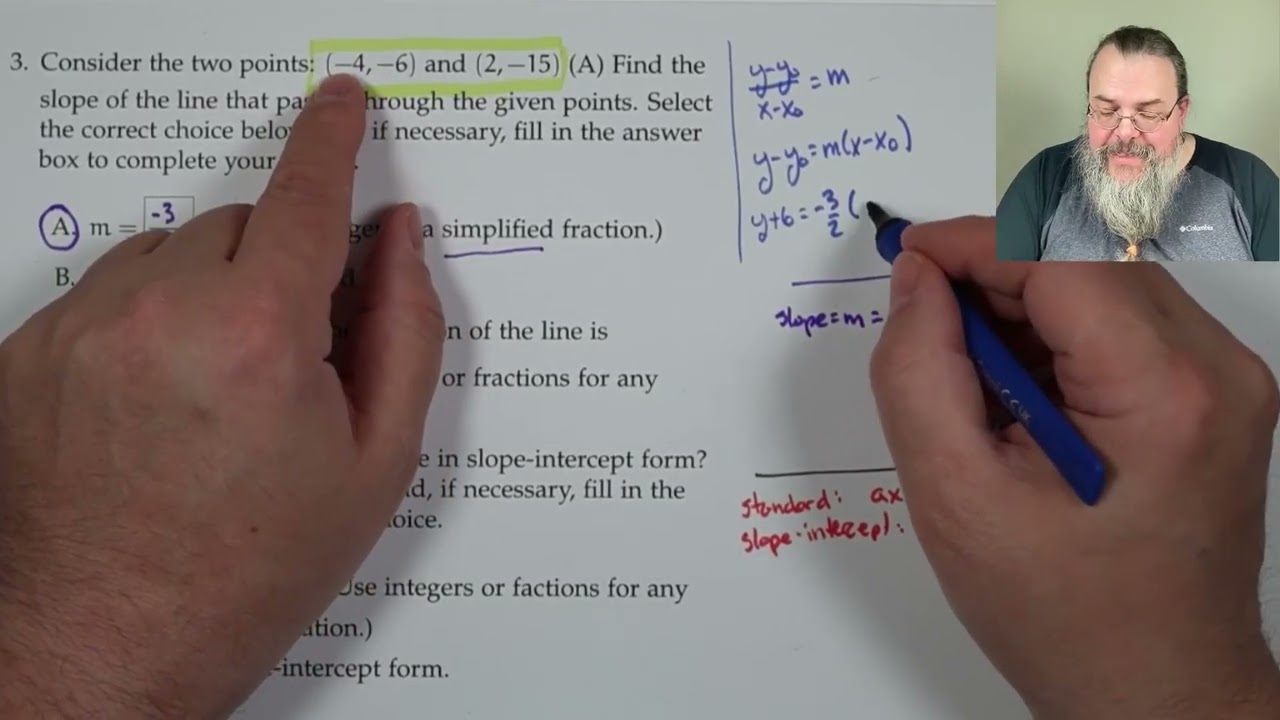 3. Consider the two points: (−4, −6) and (2, −15) (A) Find the
slope of the line that pa hrough the given points. Select
the correct choice belo if necessary, fill in the answer
box to complete your
A. m = -3 a simplified fraction.)
B.
n of the line is
or fractions for any
e in slope-intercept form?
d, if necessary, fill in the
oice.
Use integers or factions for any
ation.)
-intercept form.
y-y₀/x-x₀ = m
y-y₀ = m(x-x₀)
y+6 = -3/2 (
slope = m =
standard: ax
slope-intercept:
Columbia